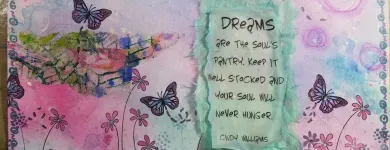 DREAMS
ARE THE SOUL'S
PANTRY. KEEP IT
WELL STOCKED AND
YOUR SOUL WILL
NEVER HUNGER.
CINDY WILLIAMS